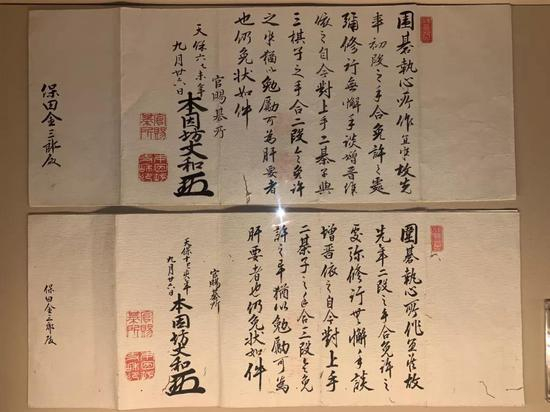 圍碁執心所作宜敷故先
年初段之手合免許之處
彌修行無懈手談増晋
依之自今對上手二碁子與
三棋子之手合二段令免許
之畢猶以勉勵可為肝要者
也仍免状如件
官賜碁所
天保六乙未年
九月廿六日
本因坊丈和
保田金三郎殿
圍碁執心所作宜故
先年二段之手合免許之
處弥修行無懈手談
増晋依之自今對上手
二棊子之手合三段令免
許之畢猶以勉勵可為
肝要者也仍免状如件
官賜碁所
天保十年
九月六日
本因坊丈和
保田金三郎殿